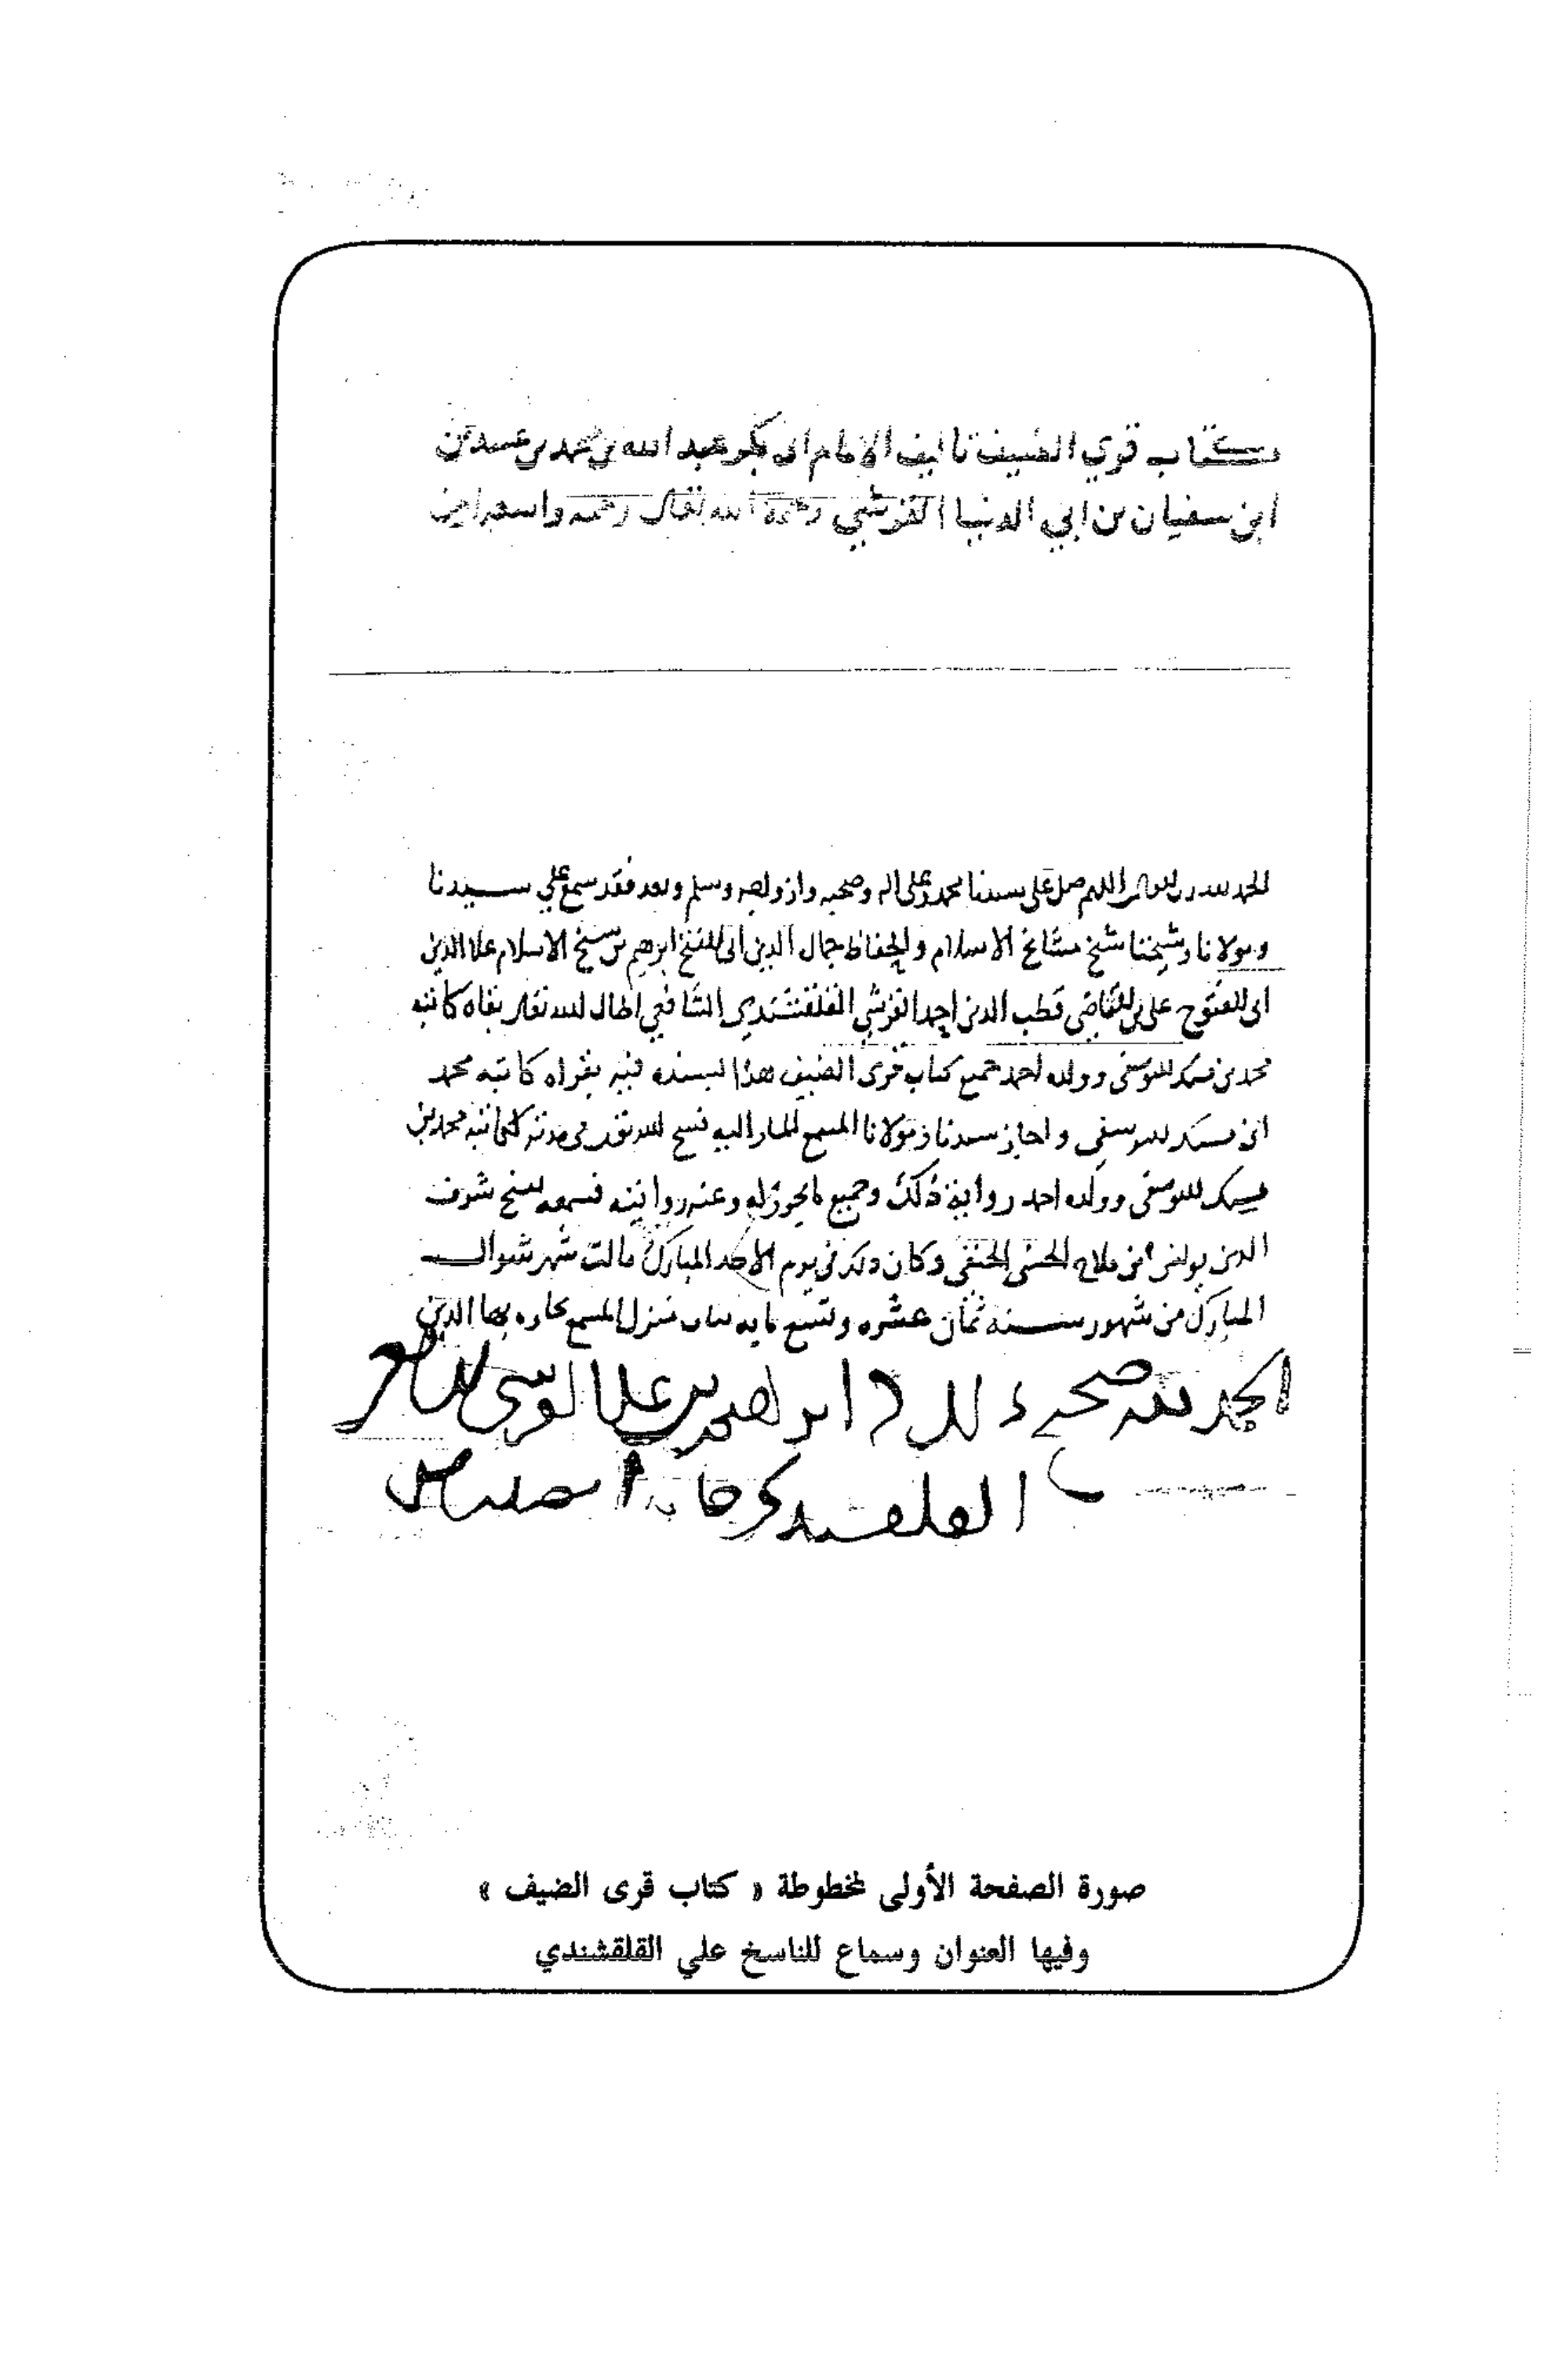 كتاب قري الضيف تاليف الامام ابي بكر عبد الله بن محمد بن عبيد بن
ابن سفيان بن ابي الدنيا القرشي رحمة الله تعالى رحمه واسعه امين
الحمد لله رب العالمين اللهم صل على سيدنا محمد وعلى اله وصحبه وازواجه وسلم وبعد فقد سمع علي سيدنا
ومولانا وشيخنا شيخ مشائخ الاسلام والحفاظ جمال الدين ابي الفتح ابرهيم بن شيخ الاسلام علا الدين
ابي الفتوح على بن القاضي قطب الدين احمد القرشي القلقشندي الشافعي اطال الله تعالى بقاه كاتبه
محمد بن وولده احمد جميع كتاب قرى الضيف هذا بسنده فيه بقراه كاتبه محمد
ابن واجاز سيدنا ومولانا المسمع المشار اليه فسح الله تعالى في مدته لكاتبه محمد بن
وولده احمد رواية ذلك وجميع ما يجوز له وعنه روايته فسمعه الشيخ شرف
الدين يونس ابن الحنفي وكان ذلك في يوم الاحد المبارك ثالث شهر شوال
المبارك من شهور سنة ثمان عشره وتسع مايه بمنزل المسمع بحاره بها الدين
الحمد لله صحيح ذلك ابرهيم بن علي القرشي الشافعي
القلقشندي
صورة الصفحة الأولى لمخطوطة « كتاب قرى الضيف »
وفيها العنوان وسماع للناسخ علي القلقشندي